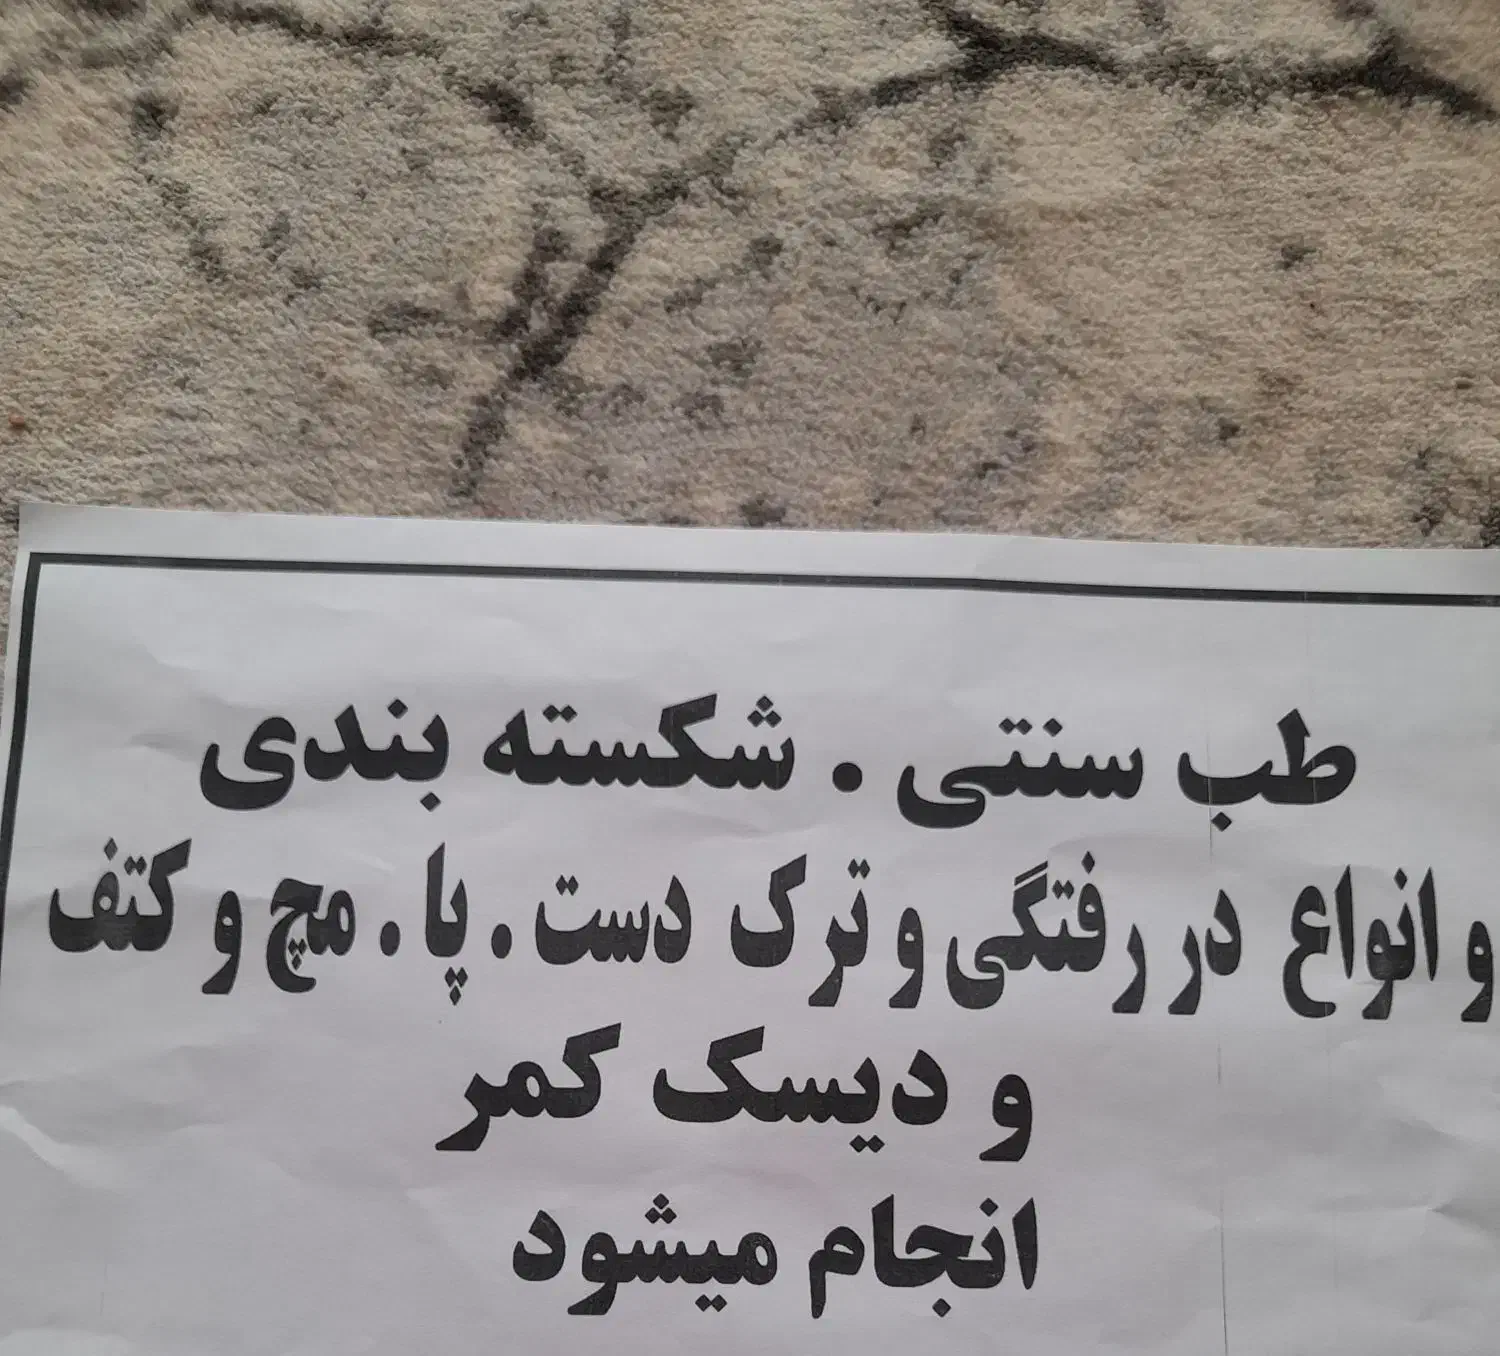 طب سنتی . شکسته بندی
و انواع در رفتگی و ترک دست . پا . مچ و کتف
و دیسک کمر
انجام میشود